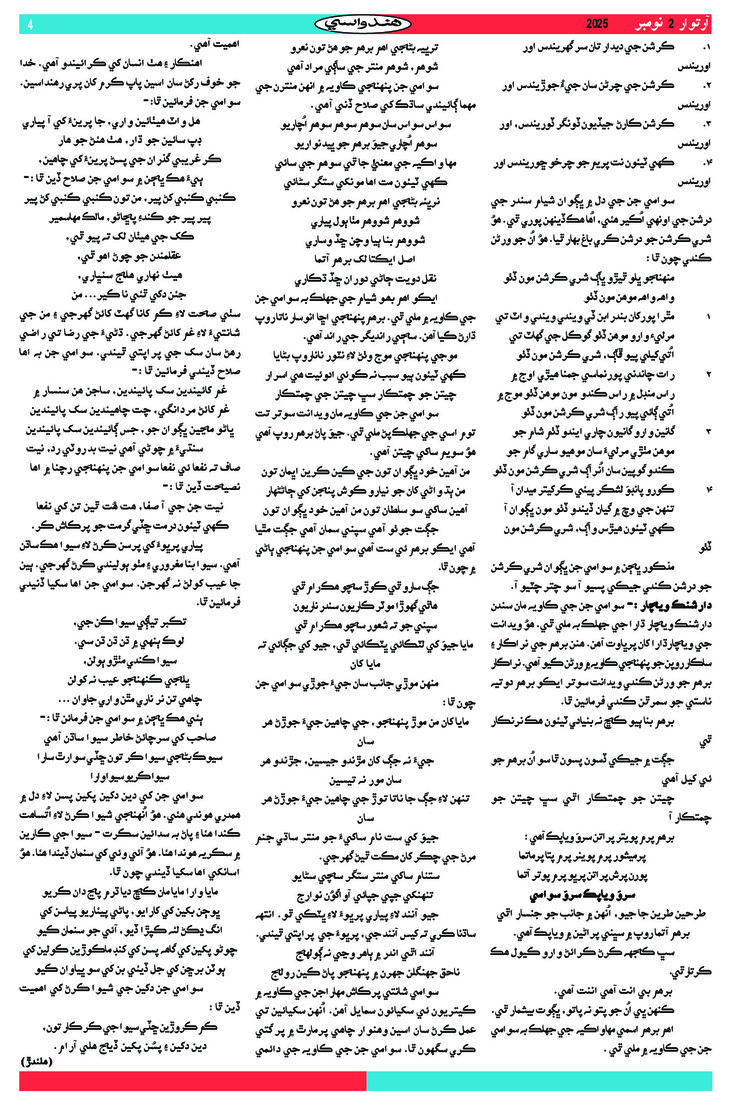 آرتوار 2 نومبر 2025
هندواسي
4
۱. ڪرشن جي ديدار تان سر گهرينديس اور
اوريندس
۲. ڪرشن جي چرڻن سان جيءُ جوڙيندس اور
اوريندس
۳. ڪرشن ڪارڻ جيڏيون ڏونگر ڏوريندس، اور
اوريندس
۴. ڪهي ٽيئون نت پريم جو چرخو چوريندس اور
اوريندس
سوامي جن جي دل ۾ ڀڳوان شيام سندر جي
درشن جي اونهي اُڪير هئي، اُها هڪ ڏينهن پوري ٿي. هوُ
شري ڪرشن جو درشن ڪري باغ بهار ٿيا. هوُ اُن جو ورڻن
ڪندي چون ٿا:
منهنجو ڀلو ٿيڙو ڀاڳ شري ڪرشن مون ڏٺو
واهه واهه موهن مون ڏٺو
رات چانڊني پورنماسي جمنا هيڙي اوج ۾
راس منڊل ۾ راس ڪندو مون موهن ڏٺو موج ۾
اُتي ڳائي پيو راڳ شري ڪرشن مون ڏٺو
ڪانهي ٽيئون هيڙس واڳ، شري ڪرشن مون
ڏٺو
مذڪور ڀاڄن ۾ سوامي جن ڀڳوان شري ڪرشن
جو درشن ڪندي جيڪي پسيو آ سو چٽر چٽيو آ.
دارشنڪ ويچار :- سوامي جن جي ڪاويه مان سندن
دارشنڪ ويچار ڌارا جي جهلڪ به ملي ٿي. هوُ ويدانت
جي ويچار ڌارا کان پرڀاوت آهن. هنن برهم جي نراڪار ۽
ساڪار روپن جو پنهنجي ڪاويه ۾ ورڻن ڪيو آهي. نراڪار
برهم جو ورڻن ڪندي ويدانت سوتر ايڪو برهم دوتيه
ناستي جو سمرٿن ڪندي فرمائين ٿا.
برهم بنا ٻيو ڪاڇ نه بنيادي ٽيئون هڪ نرنڪار
ٿي
جڳت ۾ جيڪي ڏسون پسون ٿا سو اُن برهم جو
ئي کيل آهي
چيتن جو چمتڪار اٿي سڀ چيتن جو
چمتڪار آ
برهم پرم پويتر پراتن سرو وياپڪ آهي:
پرميشور پرم پوينر پرم پتا پرماتما
پورن پرش پراتن پرڀو پرم پوتر آتما
سرو وياپڪ سرو سوامي
طرحين طرين جا جيو، اُنهن ۾ جانب جو جنسار اٿي
برهم آتماروپ ۾ سڀني پراڻين ۾ وياپڪ آهي.
سڀ ڪاڇهه ڪرڻ ڪرائڻ وارو ڪيول هڪ
ڪرتار ٿي.
برهم بي انت آهي اننت آهي.
ڪنهن پي اُن جو پتو نه پاتو، ڀڳوت بيشمار ٿي.
اهم برهم اسمي مهاواڪيه جي جهلڪ به سوامي
جن جي ڪاويه ۾ ملي ٿي.
ترييه بڻجي اهم برهم جو هڻ تون نعرو
شوهم، شوهم منتر جي ساڌي مراد آهي
سوامي جن پنهنجي ڪاويه ۾ انهن منترن جي
مهما ڳائيندي ساڌڪ کي صلاح ڏني آهي.
سواس سواس سان سوهم سوهم اُچاريو
سوهم اُچاري جيوَ برهم جو ڀيد نواريو
مهاواڪيه جي معنيٰ جاتي سوهم جي سائي
ڪهي ٽيئون مت اها مونکي ستگر سڻائي
نريئه بڻجي اهم برهم جو هڻ تون نعرو
شووهم شووهم مٺا ٻول پياري
شووهم بنا ٻيا وچن ڇڏ وساري
اصل ايڪتا لک برهم آتما
نقل دويت ڄاڻي دوران ڇڏ ڌڪاري
ايڪو اهم ٻهو شيام جي جهلڪ به سوامي جن
جي ڪاويه ۾ ملي ٿي. برهم پنهنجي اڇا انوسار ناناروپ
ڌارڻ ڪيا آهن. ساڃي رانديگر جي راند آهي.
موجي پنهنجي موج وٺڻ لاءِ نٽور ناناروپ بڻايا
ڪهي ٽيئون ٻيو سبب نه ڪوئي ادونيت هي اسرار
چيتن جو چمتڪار سڀ چيتن جي چمتڪار
سوامي جن جي ڪاويه مان ويدانت سوتر تت
توم اسي جي جهلڪ پڻ ملي ٿي. جيوَ پاڻ برهم روپ آهي
هوُ سويم ساکي چيتن آهي.
من آهين خود ڀڳوان تون جي ڪين ڪرين ايمان تون
من ٻڌ واڻي کان جو نيارو ڪوش پنجن کي ڄاڻڻهار
آهين ساکي سو سلطان تون من آهين خود ڀڳوان تون
جڳت جوٺو آهي سپني سمان آهي جڳت مٿيا
آهي ايڪو برهم ئي ست آهي سوامي جن پنهنجي ٻاڻي
۾ چون ٿا.
جڳ سارو ٿي ڪوڙ ساچو هڪ رام ٿي
هاٿي گهوڙا موٽر ڪاريون سندر ناريون
سپني جو ته شعور ساچو هڪ رام ٿي
مايا جيوَ کي لٽڪائي ڀٽڪائي ٿي، جيوَ کي جڳائي ته
مايا کان
منهن موڙي جانب سان جيءُ جوڙي سوامي جن
چون ٿا:
مايا کان من موڙ پنهنجو، جي چاهين جيءُ جوڙڻ هر
سان
جيءُ نه جڳ کان مڙندو جيسين، جڙندو هر
سان مور نه تيسين
تنهن لاءِ جڳ جا ناتا توڙ جي چاهين جيءُ جوڙڻ هر
سان
جيوَ کي ست نام ساکيءَ جو منتر ساڌي جنم
مرڻ جي چڪر کان مڪت ٿيڻ گهرجي.
ستنام ساکي منتر ستگر ساچي سڻايو
تنهنکي جپي جپائي آواگوڻ نوارج
جيوَ آنند لاءِ پياري پرڀوءَ لاءِ ڀٽڪي ٿو. انتهه
ساڌنا ڪري ته کيس آنند جي، پرڀوءَ جي پراپتي ٿيندي.
آنند اٿي اندر ۾ ٻاهر وڃي نه ڳولهاڄ
ناحق جهنگلن جهرن ۾ پنهنجو پاڻ ڪين رولاڄ
سوامي شانتي پرڪاش مهاراج جن جي ڪاويه ۾
ڪيتريون ئي سکيائون سمايل آهن. اُنهن سکيائين تي
عمل ڪرڻ سان اسين وهنوار چاهي پرمارٿ ۾ پرڳتي
ڪري سگهون ٿا. سوامي جن جي ڪاويه جي دائمي
اهميت آهي.
اهنڪار ۽ هٺ انسان کي ڪرائيندو آهي. خدا
جو خوف رکڻ سان اسين پاپ ڪرم کان پري رهنداسين.
سوامي جن فرمائين ٿا:-
ڪر غريبي گذران جي پسڻ پرينءَ کي چاهين،
ٻيءَ هڪ ڀاڄن ۾ سوامي جن صلاح ڏين ٿا:-
ڪنبي ڪنبي کڻ پير، من تون ڪنبي ڪنبي کڻ پير
پير پير جو ڪندءِ پاڇاڻو، مالڪ مهاسمير
ڪک جي هيٺان لک ته پيو ٿي،
عقلمندن جو چوڻ اهو ٿي،
هيٺ نهاري هلاڄ سنڀاري،
جنن دکي ٿئي نا ڪير ... من
سٺي صحت لاءِ ڪم کائا گهٽ کائڻ گهرجي ۽ من جي
شانتيءَ لاءِ غم کائڻ گهرجي. ڌڻيءَ جي رضا تي راضي
رهڻ سان سک جي پراپتي ٿيندي. سوامي جن به اها
صلاح ڏيندي فرمائين ٿا:-
غم کائيندين سک پائيندين، ساجن هن سنسار ۾
غم کائڻ مردانگي، چت چاهيندين سک پائيندين
ڀاڻو مڃين ڀڳوان جو، جس ڳائيندين سک پائيندين
سنڌيءَ ۾ چوڻي آهي نيت بد روٽي رد، نيت
صاف ته نفعا ئي نفعا سوامي جن پنهنجي رچنا ۾ اها
نصيحت ڏين ٿا:-
نيت جن جي آ صفا، هٿ هٿ ٿين تن کي نفعا
ڪهي ٽيئون درمت ڇٽي گرمت جو پرڪاش ڪر.
پياري پرڀوءَ کي پرسن ڪرڻ لاءِ سيوا هڪ ساڌن
آهي. سيوا بنا مغروري ۽ مٺو ٻوليندي ڪرڻ گهرجي. ٻين
جا عيب کولڻ نه گهرجن. سوامي جن اها سکيا ڏنيدي
فرمائين ٿا.
تڪبر تياڳي سيوا ڪن جي،
لوڪ ٻنهي ۾ ڌن ڌن ٿي سي.
سيوا ڪندي مٺڙو ٻولن،
ڀلاڄي ڪنهنجو عيب نه کولن
چاهي تن نر ناري هٿن واري جاوان ...
ٻئي هڪ ڀاڄن ۾ سوامي جن فرمائن ٿا:-
صاحب کي سرڄائڻ خاطر سيوا ساڌن آهي
سيوڪ بڻجي سيوا ڪر تون ڇٽي سوارٿ سارا
سيوا ڪريو سيوا وارا
سوامي جن کي دين دکين پکين پسن لاءِ دل ۾
همدري هوندي هئي. هوُ اُنهنجي شيوا ڪرڻ لاءِ اُتساهت
ڪندا هئا ۽ پاڻ به سدائين سڪرت - سيوا جي ڪارين
۾ سڪريه هوندا هئا. هوُ آئي وئي کي سنمان ڏيندا هئا. هوُ
اسانکي اها سکيا ڏيندي چون ٿا.
مايا وارا مايا مان ڪاڇ ديا ڌرم پاڄ دان ڪريو
ڀوڄن بکين کي کارايو، پاڻي پيئاريو پياسن کي
انگ ڍڪڻ لئه ڪپڙا ڏيو، آئي جو سنمان ڪيو
چوڻو پکين کي گاهه پسن کي کنڊ ماڪوڙين کولين کي
ٻوٽن برڇن کي جل ڏيئي بن کي سو ڀياوان ڪيو
سوامي جن دکين جي شيوا ڪرڻ کي اهميت
ڏين ٿا:-
ڪم ڪروڙين ڇٽي سيوا جي ڪار ڪار تون،
دين دکين ۽ پسن پکين ڏياڄ هلي آرام.
(هلندڙ)